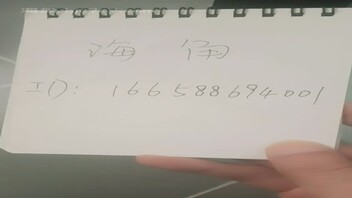 海阔
ID: 166588694001